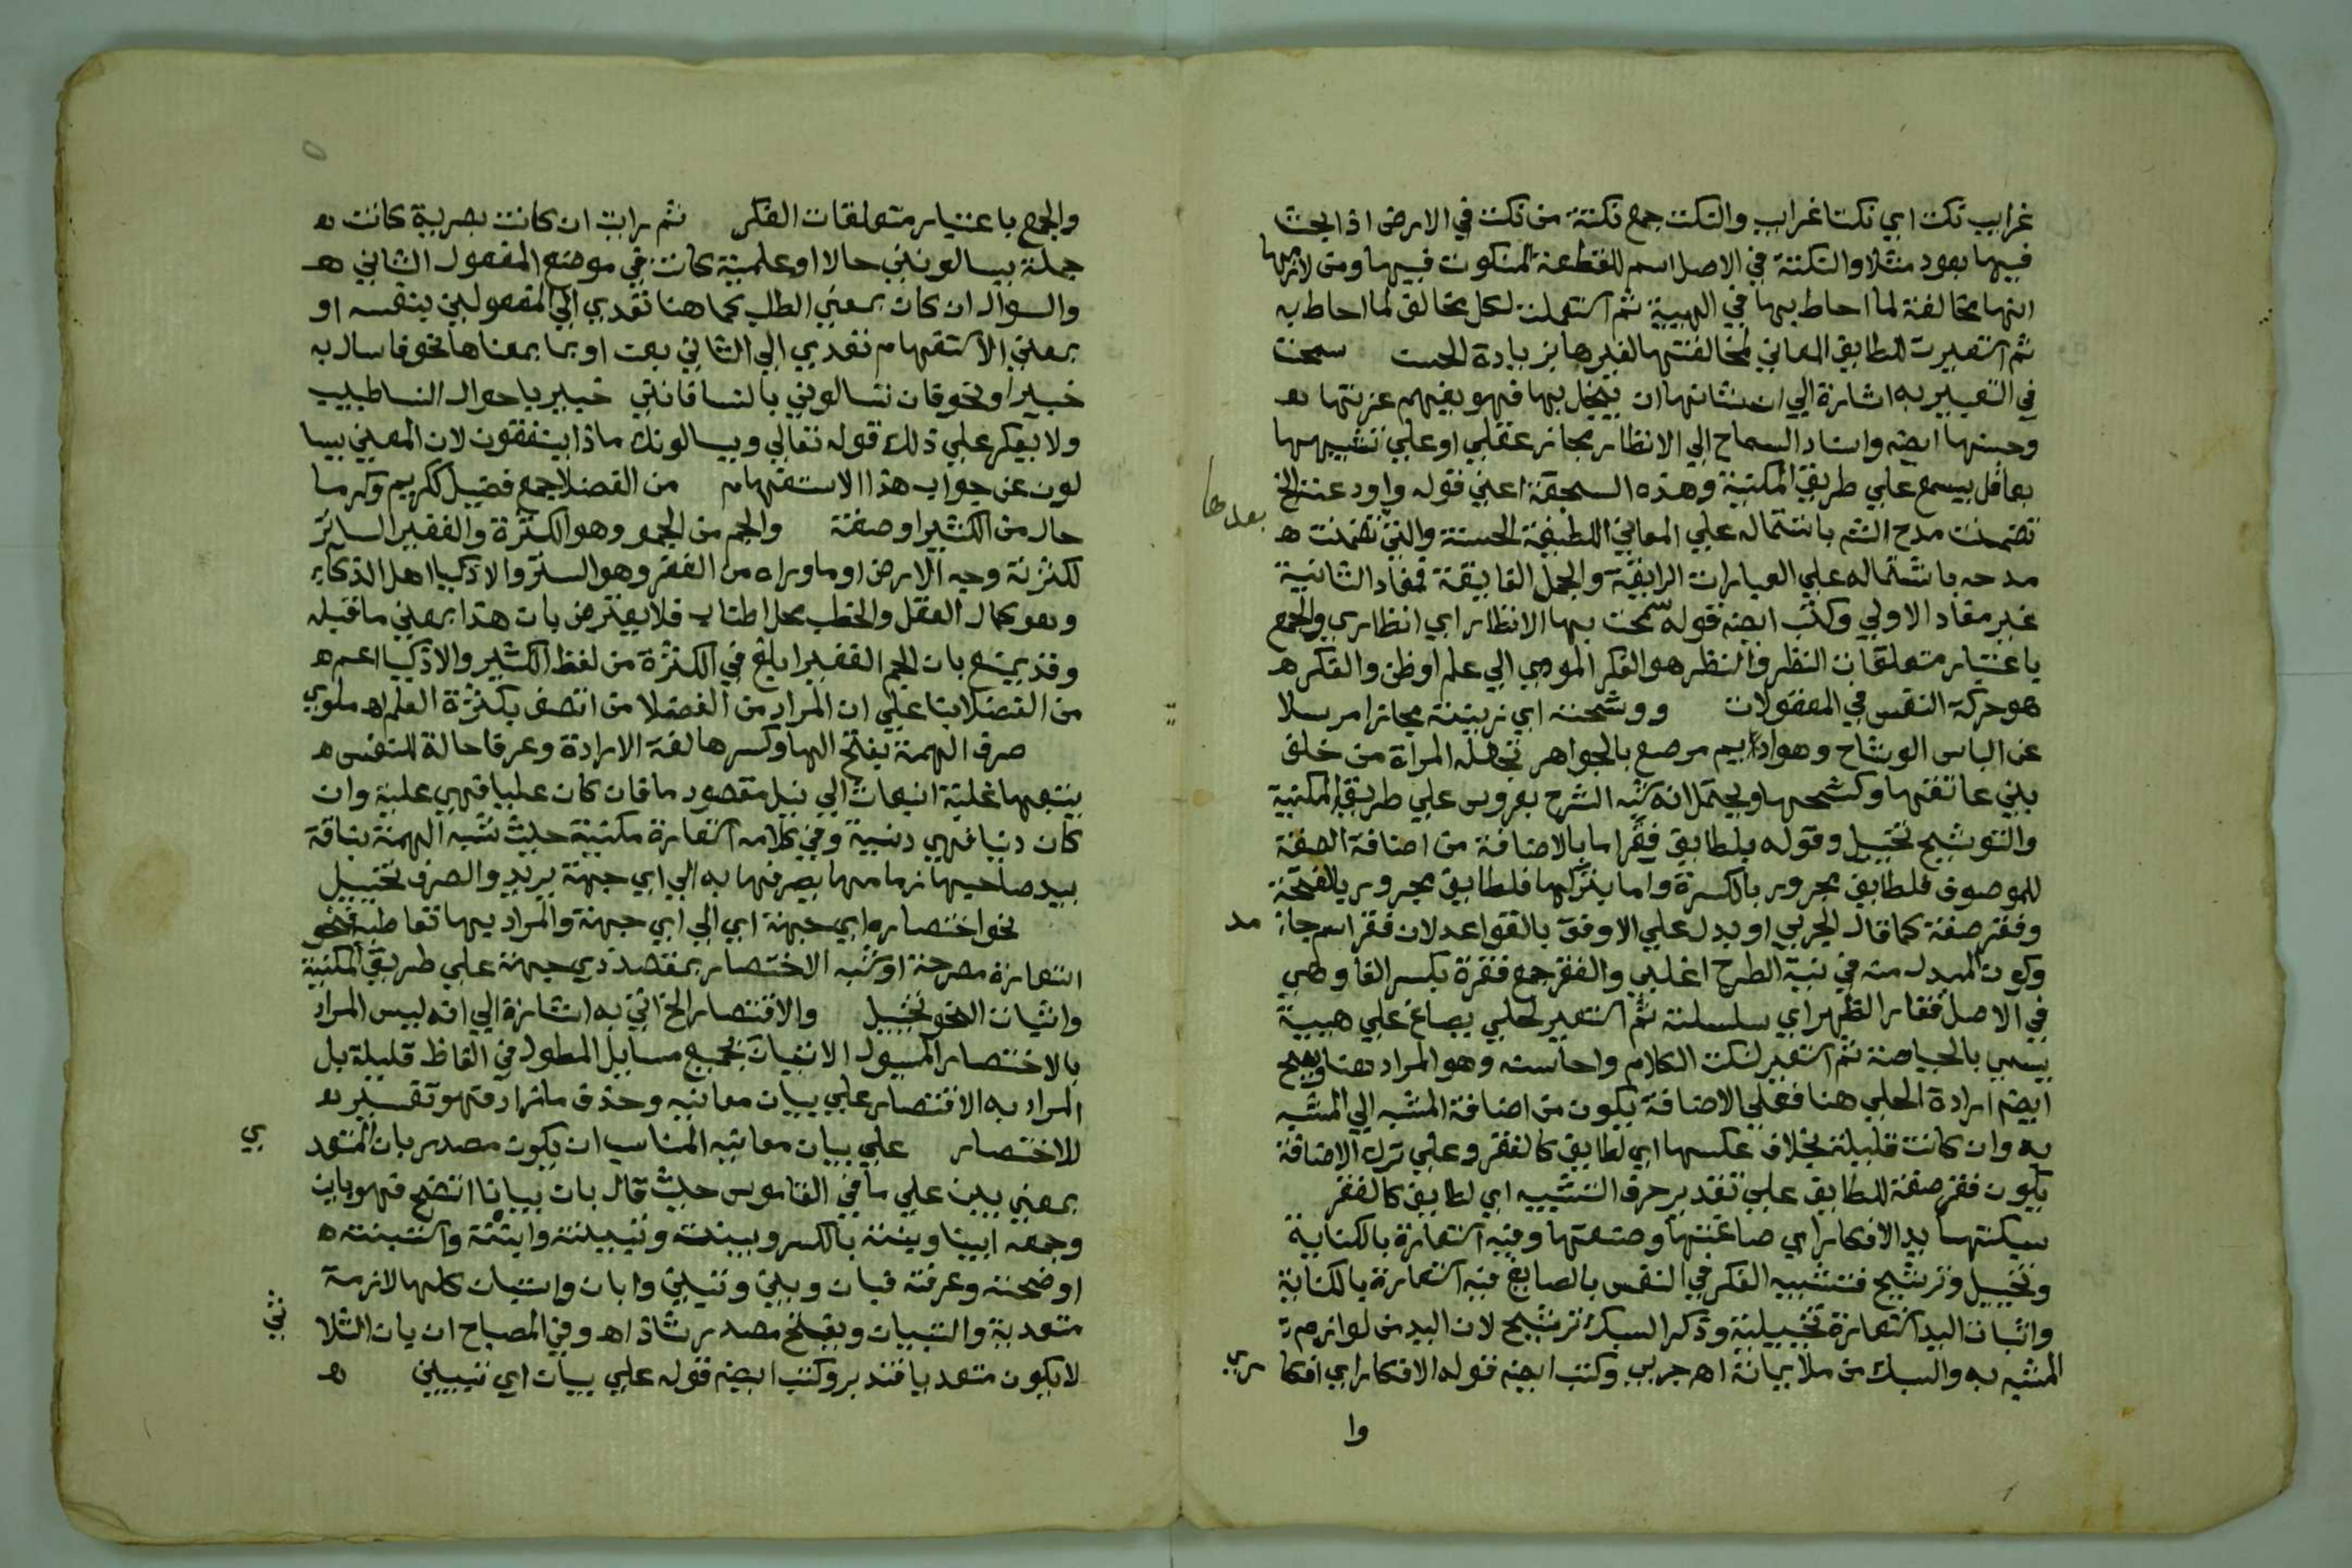 غرايب نكت اي نكتا غرايب والنكت جمع نكتة من نكت في الارض اذا بحث
فيها بعود مثلا والنكتة في الاصل اسم للقطعة المنكوت فيها ومن لازمها
انها مخالفة لما احاط بها في الهيية ثم استعملت لكل مخالف لما احاط به
ثم استعيرت للطايف المعاني لمخالفتها لغيرها بزيادة الحسن سمحت
في التعبير به اشارة الي ان شانها ان يبخل بها فهو يفهم عزتها ه
وحسنها ايضه واسناد السماح الي الانظار مجاز عقلي او علي تشبيهها
بعاقل يسمع علي طريق المكنية وهذه السجعة اعني قوله واودعته الخ
بعدها
تضمنت مدح الشم باشتماله علي المعاني اللطيفة الحسنة والتي تضمنت ه
مدحه باشتماله علي العبارات الرايقة والجمل الفايقة فمفاد الثانية
غير مفاد الاولي وكتب ايضه قوله سمحت بها الانظار اي انظاري والجمع
باعتبار متعلقات النظر والنظر هو الفكر المودي الي علم او ظن والفكر ه
هو حركة النفس في المعقولات ووشحته اي زينته مجازا مرسلا
عن الباس الوشاح وهو اديم مرصع بالجواهر تجعله المراة من خلف
بين عاتقها وكشحها ويحتمل انه شبه الشرح بعروس علي طريق المكنية
والتوشيح تخييل وقوله بلطايف فقر اما بالاضافة من اضافة الصفة
للموصوف فلطايف مجرور بالكسرة واما بتركها فلطايف مجرور بالفتحة
وفقر صفة كما قال الجربي او بدل علي الاوفق بالقواعد لان فقر اسم جا
مد
وكون المبدل منه في نية الطرح اغلبي والفقر جمع فقرة بكسر الفا وهي
في الاصل فقار الظهر اي سلسلته ثم استعير لحلي يصاغ علي هيية
يسمي بالحياصة ثم استعير لنكت الكلام واحاسنه وهو المراد هنا ويصح
ايضه ارادة الحلي هنا فعلي الاضافة يكون من اضافة المشبه الي المشبه
به وان كانت قليلة بخلاف عكسها اي لطايف كالفقر وعلي ترك الاضافة
يكون فقر صفة للطايف علي تقدير حرف التشبيه اي لطايف كالفقر
سبكتها يد الافكار اي صاغتها وصنعتها وفيه استعارة بالكناية
وتخييل وترشيح فتشبيه الفكر في النفس بالصايغ فيه استعارة بالكناية
واثبات اليد استعارة تخييلية وذكر السبك ترشيح لان اليد من لوازم
المشبه به والسبك من ملايماته اه جربي وكتب ايضه قوله الافكار اي افكا
ري
وا
والجمع باعتبار متعلقات الفكر ثم رايت ان كانت بصرية كانت ه
جملة يسالونني حالا او علمية كانت في موضع المفعول الثاني ه
والسوال ان كان بمعني الطلب كما هنا تعدي الي المفعولين بنفسه او
بمعني الاستفهام تعدي الي الثاني بعن او بما بمعناها نحو فاسال به
خبيرا ونحو فان تسالوني بالنسا فانني خبير باحوال النسا طبيب
ولا يعكر علي ذلك قوله تعالي ويسالونك ماذا ينفقون لان المعني يسا
لون عن جواب هذا الاستفهام من الفضلا جمع فضيل ككريم وكرما
حال من الكثير او صفة والجم من الجمو وهو الكثرة والغفير الساتر
لكثرته وجه الارض او ما وراه من الغفر وهو الستر والاذكيا اهل الذكاء
وهو كمال العقل والخطب محل اطناب فلا يعترض بان هذا بمعني ما قبله
وقد يمنع بان الجم الغفير ابلغ في الكثرة من لفظ الكثير والاذكيا اعم ه
من الفضلا بنا علي ان المراد من الفضلا من اتصف بكثرة العلم اه ملوي
صرف الهمة بفتح الها وكسرها لغة الارادة وعرفا حالة للنفس ه
يتبعها غلبة انبعاث الي نيل مقصود ما فان كان عليا فهي علية وان
كان دنيا فهي دنية وفي كلامه استعارة مكنية حيث شبه الهمة بناقة
بيد صاحبها زمامها يصرفها به الي اي جهة يريد والصرف تخييل
نحو اختصاره اي جهة اي الي اي جهة والمراد بها تعاطيه فنحو
استعارة مصرحة او شبه الاختصار بمقصد ذي جهة علي طريق المكنية
واثبات النحو تخييل والاقتصار الخ اتي به اشارة الي انه ليس المراد
بالاختصار المسيول الاتيان بجميع مسايل المطول في الفاظ قليلة بل
المراد به الاقتصار علي بيان معانيه وحذف ما زاد فهو تفسير ه
للاختصار علي بيان معانيه المناسب ان يكون مصدر بان المتعد
ي
بمعني بين علي ما في القاموس حيث قال بان بيانا اتضح فهو باين
وجمعه ابينا وبنته بالكسر وبينته وتبينته وابنته واستبنته ه
اوضحته وعرفته فبان وبين وتبين وابان واستبان كلها لازمة
متعدية والتبيان ويفتح مصدر شاذ اه وفي المصباح ان بان الثلا
ثي
لا يكون متعديا فتدبر وكتب ايضه قوله علي بيان اي تبيين ه